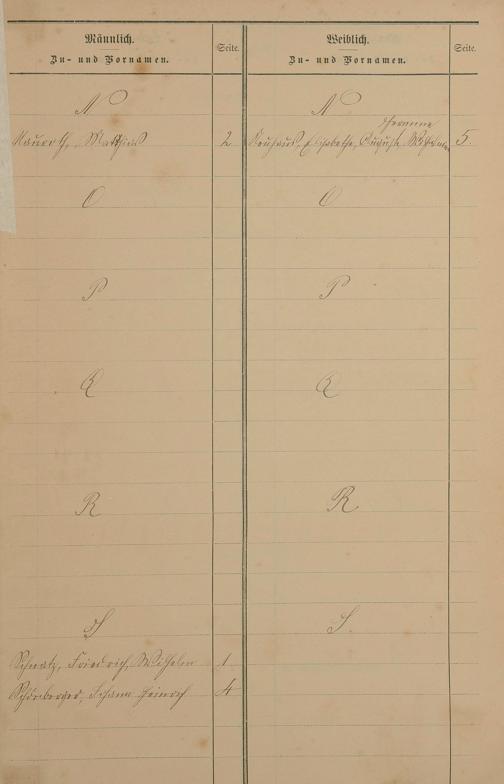 Männlich.
Zu- und Vornamen.
Seite.
Weiblich.
Zu- und Vornamen.
Seite.
N
N
Nauroth, Matthias 2
Neuhaus, Elisabethe, Auguste Wilhelmine 5.
O
O
P
P
Q
Q
R
R
S
S.
Schwatz, Friedrich, Wilhelm 1
Schönberger, Johann Heinrich 4